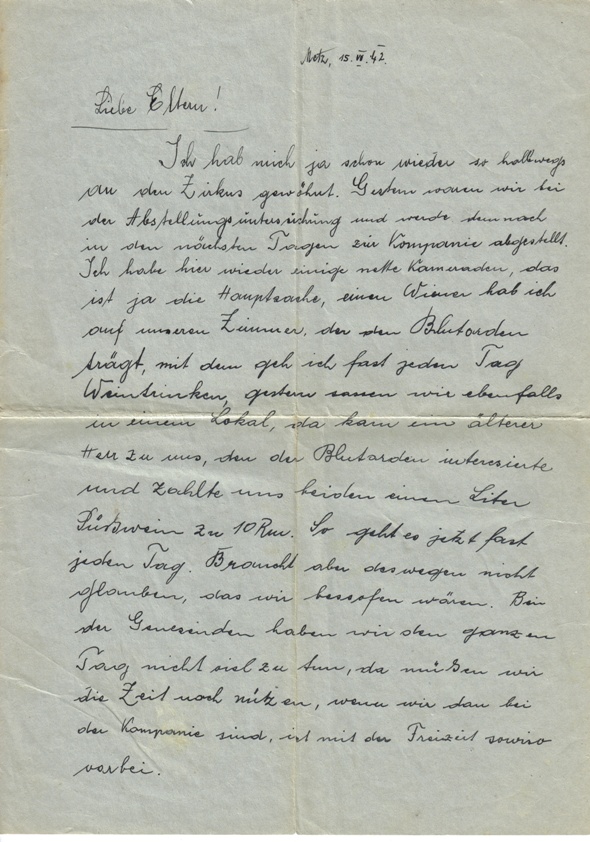 Metz, 15. VI. 42.
Liebe Eltern!
Ich hab mich ja schon wieder so halbwegs
an den Zirkus gewöhnt. Gestern waren wir bei
der Abstellungsuntersuchung und werde demnach
in den nächsten Tagen zur Kompanie abgestellt.
Ich habe hier wieder einige nette Kameraden, das
ist ja die Hauptsache, einen Wiener hab ich
auf unseren Zimmer, der den Blutorden
trägt, mit dem geh ich fast jeden Tag
Weintrinken, gestern sassen wir ebenfalls
in einem Lokal, da kam ein älterer
Herr zu uns, den der Blutorden interesierte
und zahlte uns beiden einen Liter
Süßwein zu 10 Rm. So geht es jetzt fast
jeden Tag. Braucht aber deswegen nicht
glauben, das wir bessofen wären. Bei
der Genesenden haben wir den ganzen
Tag nicht viel zu tun, da müßen wir
die Zeit noch nützen, wenn wir dan bei
der Kompanie sind, ist mit der Freizeit sowiso
vorbei.